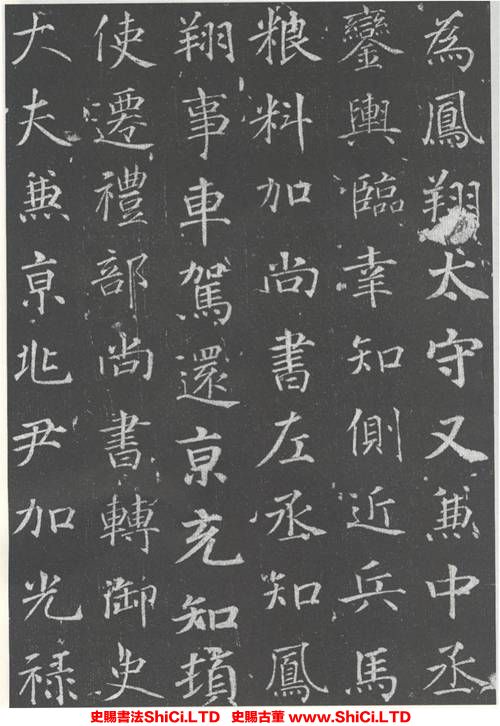 為鳳翔太守又兼中丞
鑾輿臨幸知側近兵馬
粮料加尚書左丞知鳳
翔事車駕還京充知頓
使遷禮部尚書轉御史
大夫兼京兆尹加光禄
史賜書法ShiCi.LTD 史賜古董 www.ShiCi.LTD